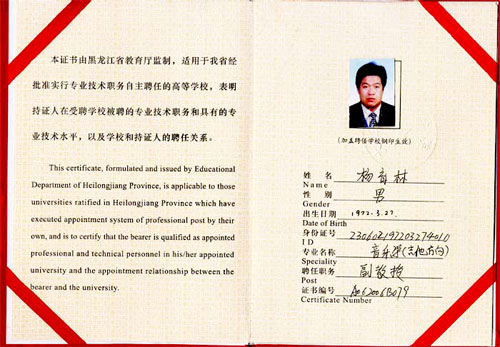 本证书由黑龙江省教育厅监制，适用于我省经
批准实行专业技术职务自主聘任的高等学校，表明
持证人在受聘学校被聘的专业技术职务和具有的专
业技术水平，以及学校和持证人的聘任关系。
This certificate, formulated and issued by Educational
Department of Heilongjiang Province, is applicable to those
universities ratified in Heilongjiang Province which have
executed appointment system of professional post by their
own, and is to certify that the bearer is qualified as appointed
professional and technical personnel in his/her appointed
university and the appointment relationship between the
bearer and the university.
(加盖聘任学校钢印生效)
姓名 杨 林
Name
性别 男
Gender
出生日期 1972.3.27
Date of Birth
身份证号
ID
专业名称 音乐学(吉他方向)
Speciality
聘任职务 副教授
Post
证书编号 A0620063079
Certificate Number